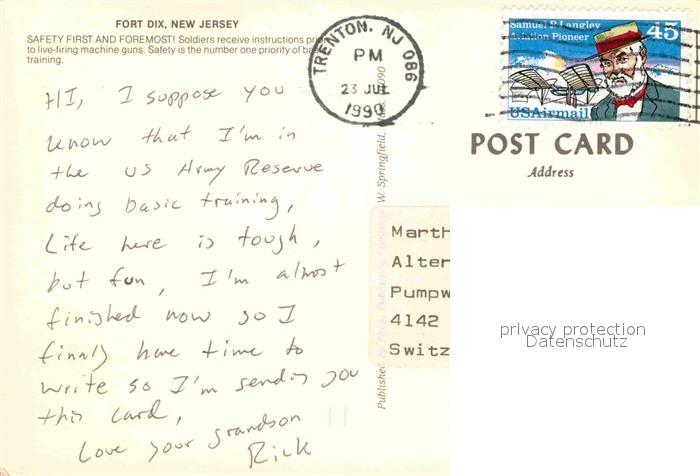 FORT DIX, NEW JERSEY
SAFETY FIRST AND FOREMOST! Soldiers receive instructions prior
to live-firing machine guns. Safety is the number one priority of basic
training.
HI, I suppose you
know that I'm in
the US Army Reserve
doing basic training,
Life here is tough,
but fun, I'm almost
finished now so I
finaly have time to
write so I'm sending you
this card,
Love your grandson
Rick
TRENTON, NJ 086
PM
23 JUL
1990
Samuel P. Langley
Aviation Pioneer
45
USAirmail
POST CARD
Address
Marth
Alter
Pumpw
4142
Switz
privacy protection
Datenschutz
Published by
W. Springfield,